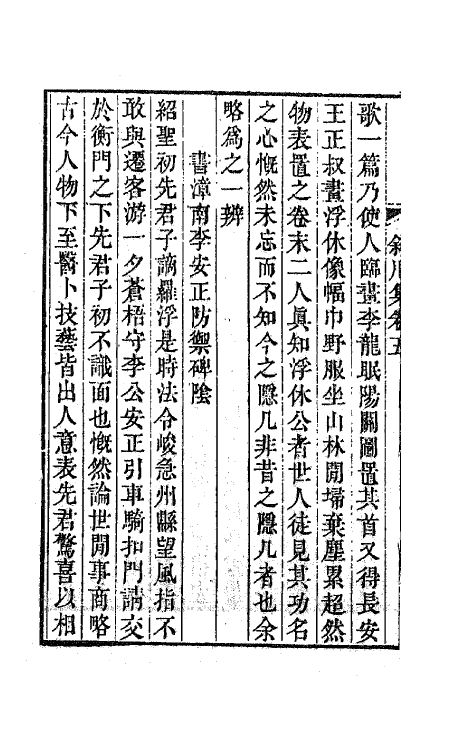 斜川集卷五
歌一篇乃使人臨畫李龍眠陽關圖置其首又得長安
王正叔畫浮休像幅巾野服坐山林閒埽棄塵累超然
物表置之卷末二人眞知浮休公者世人徒見其功名
之心慨然未忘而不知今之隱几非昔之隱几者也余
略爲之一辨
書漳南李安正防禦碑陰
紹聖初先君子謫羅浮是時法令峻急州縣望風指不
敢與遷客游一夕蒼梧守李公安正引車騎扣門請交
於衡門之下先君子初不識面也慨然論世閒事商略
古今人物下至醫卜技藝皆出人意表先君驚喜以相